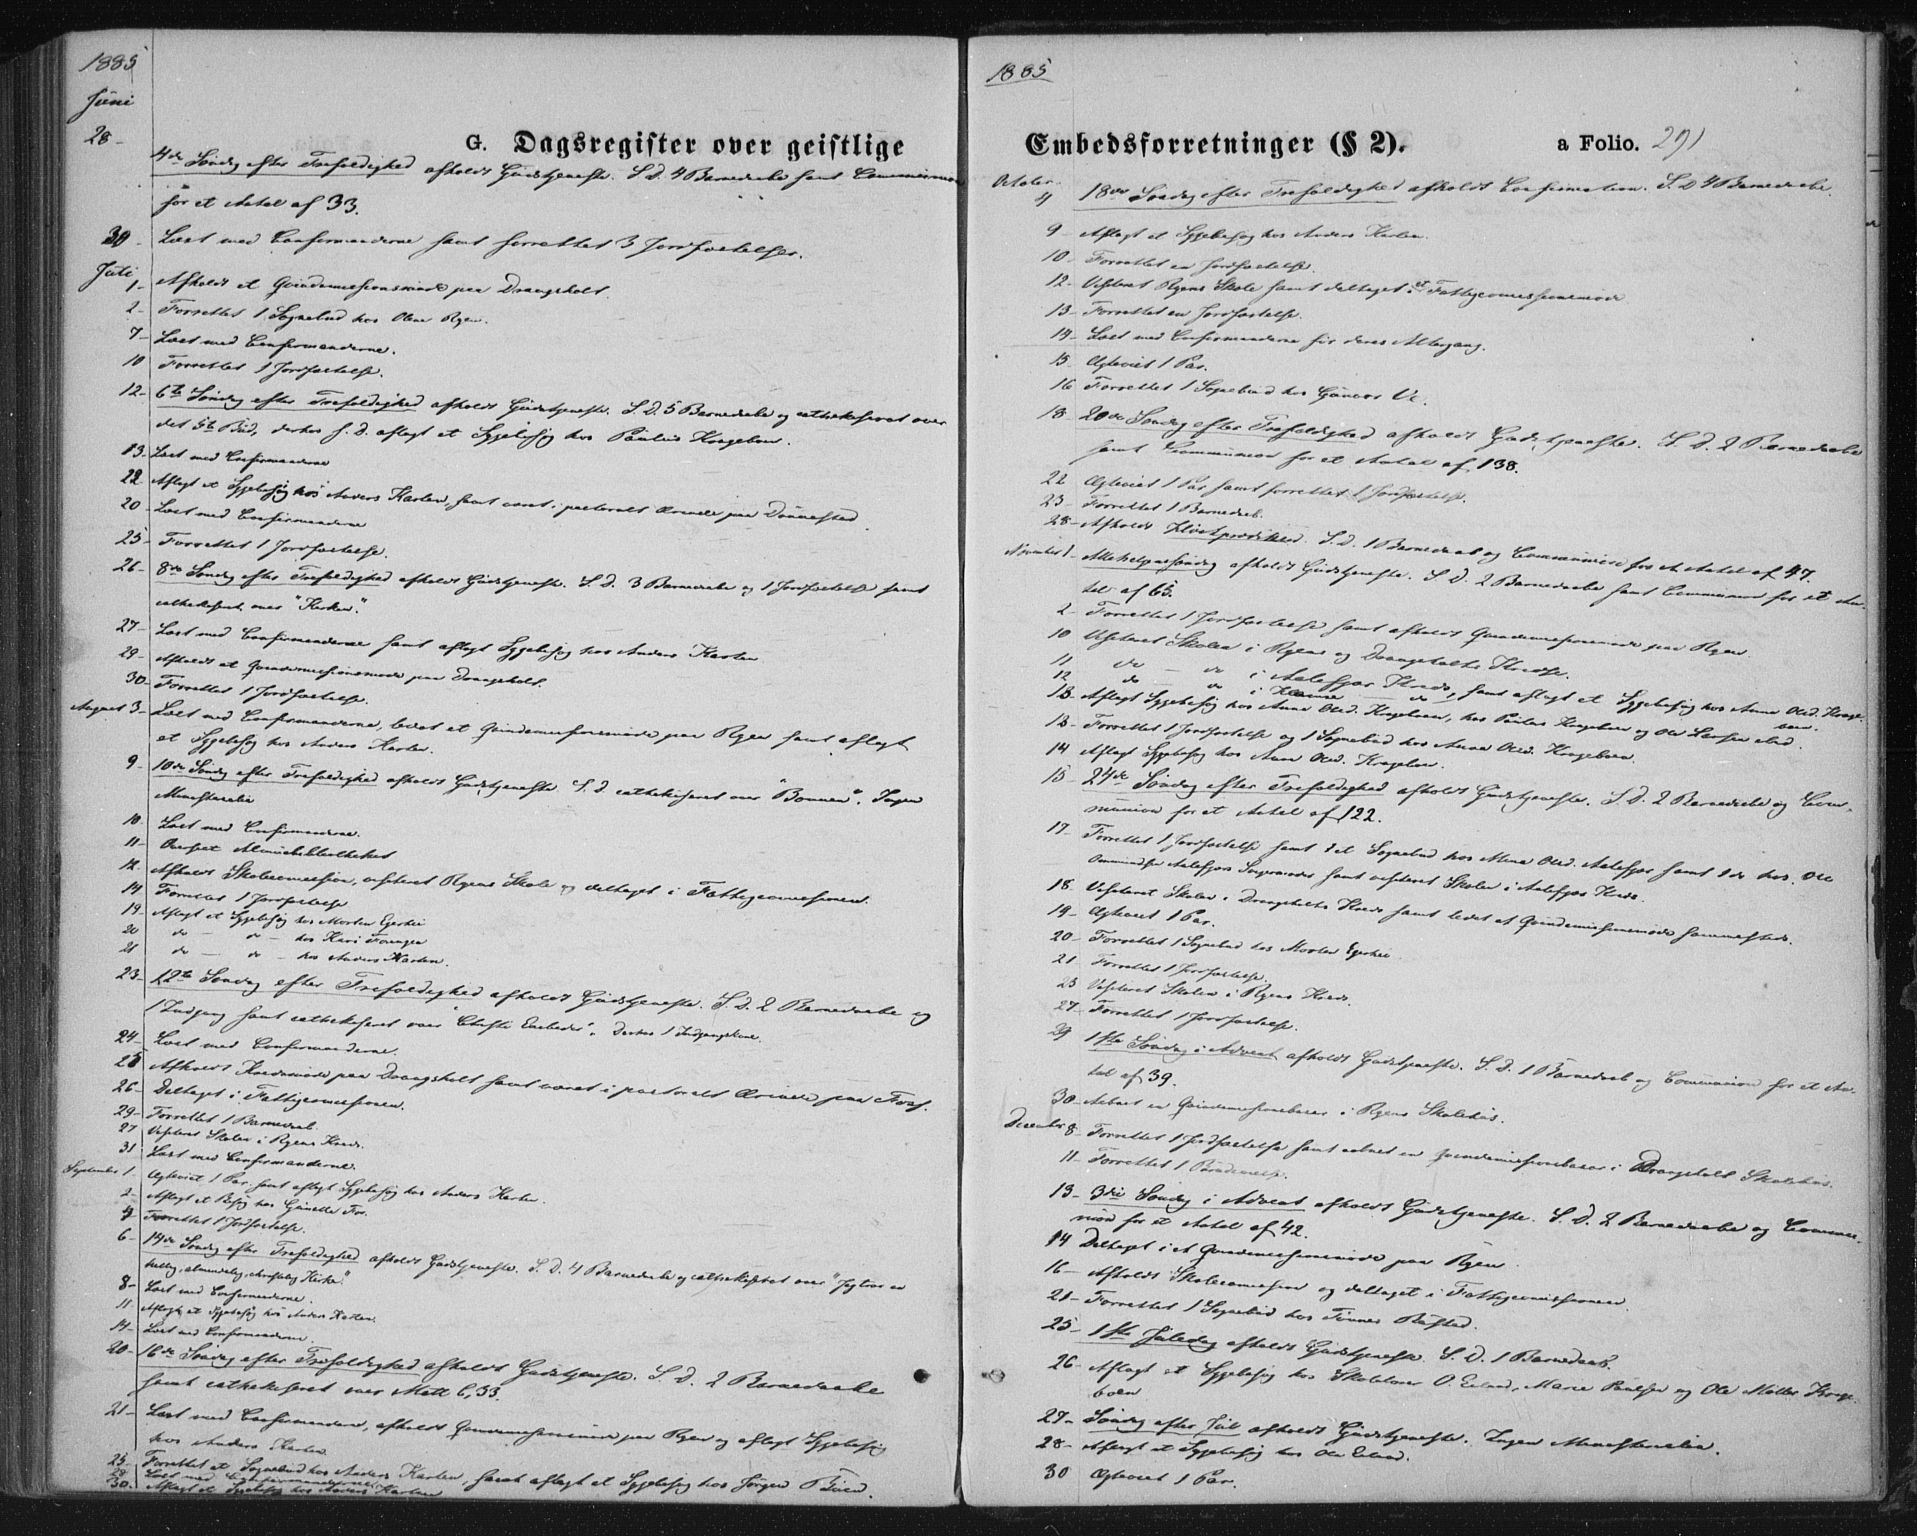 1885
Juni
G. Dagsregister over geistlige
28 - 4de Søndag efter Trefoldighed afholdt Gudstjeneste. S. D. 4 Barnedaabe samt Communion
for et Antal af 33.
30 - Læst med Confirmanderne samt forrettet 3 Jordfæstelser.
Juli
1 - Afholdt et Qvindemissionsmøde paa Drangsholt.
2 - Forrettet 1 Sognebud hos Olene Ryen.
7 - Læst med Confirmanderne.
10 Forrettet 1 Jordfæstelse.
12 - 6te Søndag efter Trefoldighed afholdt Gudstjeneste. S. D. 5 Barnedaabe og cathekiseret over
det 5te Bud, derhos s. D. aflagt et Sygebesøg hos Paulus Kragebon.
13 - Læst med Confirmanderne
22 Aflagt et Sygebesøg hos Anders Karlen, samt været i pastoralt Ærinde paa Dønnestad.
20 - Læst med Confirmanderne
25 - Forrettet 1 Jordfæstelse.
26 - 8de Søndag efter Trefoldighed afholdt Gudstjeneste. S. D. 3 Barnedaabe og 1 Jordfæstelse samt
cathekiseret over "Kirken".
27 - Læst med Confirmanderne samt aflagt Sygebesøg hos Anders Karlen
29 - Afholdt et Qvindemissionsmøde paa Drangsholt.
30 - Forrettet 1 Jordfæstelse.
August 3 - Læst med Confirmanderne, ledet et Qvindemissionsmøde paa Ryen samt aflagt
et Sygebesøg hos Anders Karlen.
9 - 10de Søndag efter Trefoldighed afholdt Gudstjeneste. S. D. cathekiseret over "Bønnen". Ingen
Ministerialia
10 - Læst med Confirmanderne.
11 - Almuebibliotheket
12 - Afholdt Skolecommission, visiteret Ryens Skole og deltaget i Fattigcommissionen.
14 Forrettet 1 Jordfæstelse
19 - Aflagt et Sygebesøg hos Morten Egerhei
20 do - do - hos Kari
21 do - do - hos Anders Karlen.
23 - 12te Søndag efter Trefoldighed afholdt Gudstjeneste. S. D. 2 Barnedaabe og
1 Indgang samt cathekiseret over "Christi Embeder". Derhos 1 Indgangskone.
24 - Læst med Confirmanderne.
25 Afholdt Kredsmøde paa Drangsholt samt været i pastoralt Ærinde paa Foss.
26 - Deltaget i Fattigcommissionen.
29 - Forrettet 1 Barnedaab.
27 Visiteret Skolen i Ryens Kreds.
31 Læst med Confirmanderne.
September 1 Ægteviet 1 Par samt aflagt Sygebesøg hos Anders Karlen.
2 - Aflagt et Besøg hos Gunelle Fos.
4 - Forrettet 1 Jordfæstelse.
6 - 14de Søndag efter Trefoldighed afholdt Gudstjeneste. S. D. 4 Barnedaabe og cathekiseret over "Jeg troer en
hellig, almindelig, christelig Kirke".
8 - Læst med Confirmanderne.
11 - Aflagt et Sygebesøg hos Anders Karlen.
14 - Læst med Confirmanderne.
20 - 16de Søndag efter Trefoldighed afholdt Gudstjeneste. S. D. 2 Barnedaabe
samt cathekiseret over Matt 6,33.
21 - Læst med Confirmanderne, afholdt Qvindemissionsmøde paa Ryen og aflagt Sygebesøg
hos Anders Karlen
25 - Forrettet et Sognebud hos Anders Karlen, samt aflagt et Sygebesøg hos Jørgen Bøen.
28 - Læst med Confirmanderne
30 - Aflagt et Sygebesøg hos Anders Karlen
1885
Embedsforretninger (§ 2). a Folio. 291
October
4 18de Søndag efter Trefoldighed afholdt Confirmation. S. D 4 Barnedaabe.
9 - Aflagt et Sygebesøg hos Anders Karlen.
10 - Forrettet en Jordfæstelse.
12 - Visiteret Ryens Skole samt deltaget i et Fattigcommissionsmøde
13 - Forrettet en Jordfæstelse.
14 - Læst med Confirmanderne før deres Altergang.
15 - Ægteviet 1 Par.
16 Forrettet 1 Sognebud hos Gunvor Ve.
18 - 20de Søndag efter Trefoldighed afholdt Gudstjeneste. S. D. 2 Barnedaabe
samt Communion for et Antal af 138.
22 Ægteviet 1 Par samt forrettet 1 Jordfæstelse.
23 - Forrettet 1 Barnedaab.
28 - Afholdt Høstprædiken. S. D. 1 Barnedaab og Communion for et Antal af 47.
November 1 - Allehelgenssøndag afholdt Gudstjeneste. S. D. 2 Barnedaabe samt Communion for et An-
tal af 65.
2 - Forrettet 1 Jordfæstelse samt afholdt Qvindemissionsmøde paa Ryen.
10 Visiteret Skolen i Ryens og Drangsholts Kredse.
11 do - do i Aalefjær Kreds, samt aflagt et Sygebesøg hos Anne Olsd. Krage-
12 do - do i - do - boen.
13 - Aflagt Sygebesøg hos Anne Olsd. Krageboen, hos Paulus Krageboen og Ole Larsen
13 - Forrettet 1 Jordfæstelse og 1 Sognebud hos Anne Olsd. Krageboen.
14 Aflagt Sygebesøg hos Anne Olsd. Krageboen.
15 24de Søndag efter Trefoldighed afholdt Gudstjeneste. S. D. 2 Barnedaabe og Com-
munion for et Antal af 122.
17 - Forrettet 1 Jordfæstelse samt 1 et Sognebud hos Olsd. Aalefjær samt 1 do hos Ole
Aalefjær samt visiteret Skolen i Aalefjær Kreds.
18 - Visiteret Skolen i Drangsholts Kreds samt ledet et Qvindemissionsmøde sammesteds.
19 - Ægteviet 1 Par.
20 - Forrettet 1 Sognebud hos Morten Egerhei.
21 Forrettet 1 Jordfæstelse.
23 Visiteret Skolen i Ryens Kreds.
27 - Forrettet 1 Jordfæstelse.
29 1ste Søndag i Advent afholdt Gudstjeneste. S. D. 1 Barnedaab og Communion for et An-
tal af 39.
30 - Aabnet en Qvindemissionsbasar i Ryens Skolehus.
December 8 - Forrettet 1 Jordfæstelse samt aabnet en Qvindemissionsbasar i Drangsholt Skolehus.
11 - Forrettet 1
13 - 3die Søndag i Advent afholdt Gudstjeneste. S. D. 2 Barnedaabe og Commu-
nion for et Antal af 42.
14 Deltaget i et Qvindemissionsmøde paa Ryen
16 - Afholdt Skolecommission og deltaget i Fattigcommissionen.
21 - Forrettet 1 Sognebud hos Tønnes
25 - 1ste Juledag afholdt Gudstjeneste. S. D. 1 Barnedaab.
26 - Aflagt et Sygebesøg hos Skolelærer O. Eeland, Marie Paulsen og Ole Møller Krage-
boen
27 - Søndag efter Jul afholdt Gudstjeneste. Ingen Ministerialia.
28 - Aflagt et Sygebesøg hos Ole Eeland.
30 Ægteviet 1 Par.